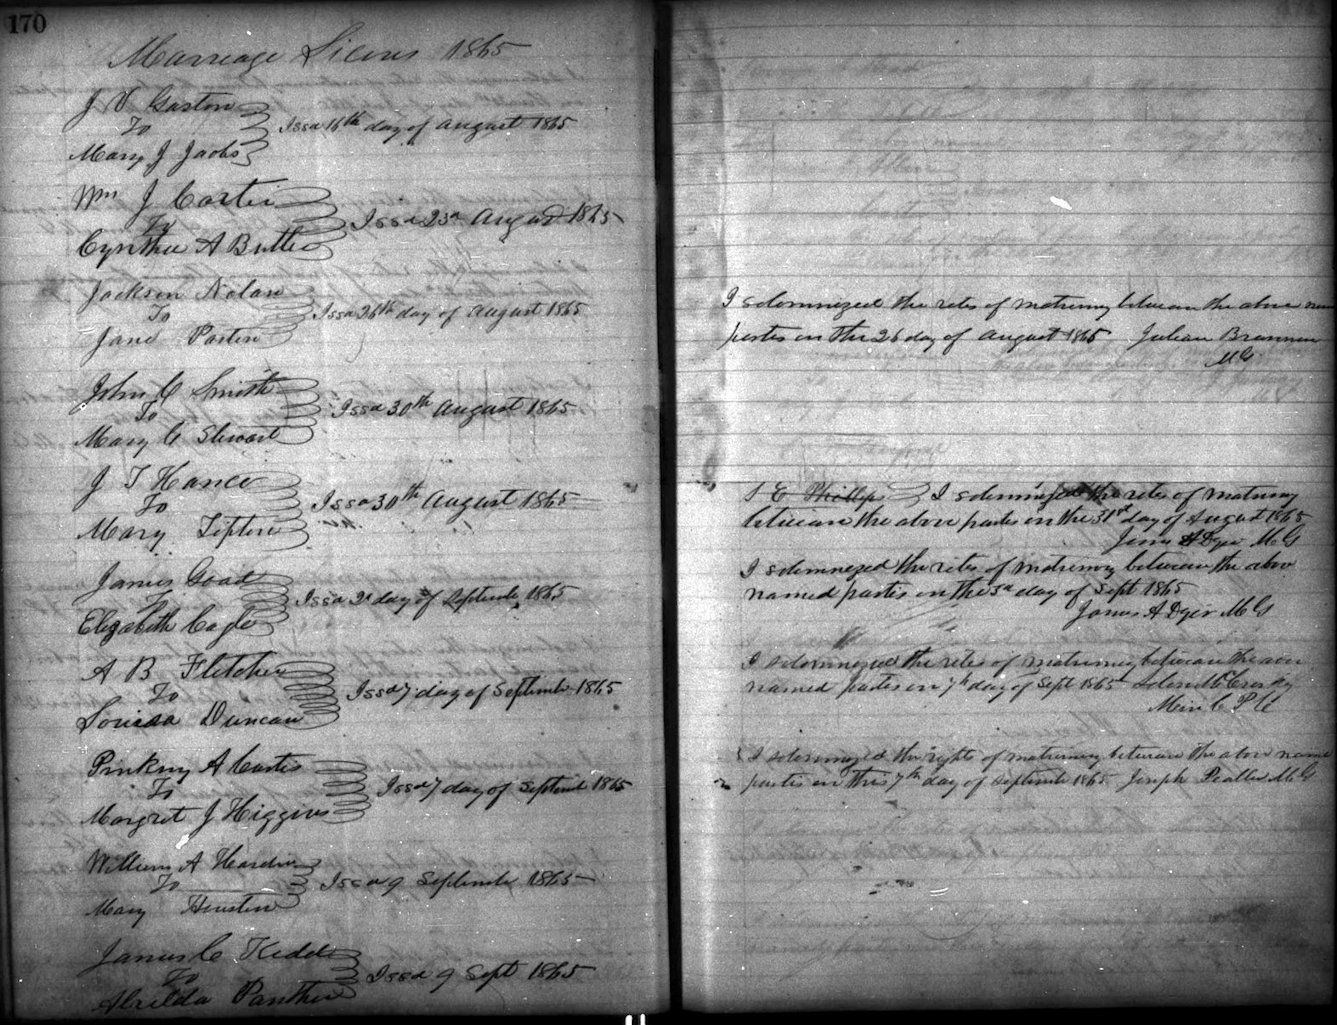 170
Marriage Licens 1865
J V Gaston
To
Mary J Jacks
Issd 16th day of August 1865
Wm J Carter
To
Cynthia A Butler
Issd 23d August 1865
Jackson Nolan
To
Jane Parten
Issd 26th day of August 1865
John C Smith
To
Mary C Stewart
Issd 30th August 1865
J T Hance
To
Mary Tipton
Issd 30th August 1865
James Goad
To
Elizabeth Cagle
Issd 2d day of September 1865
A B Fletcher
To
Louisa Duncan
Issd 7 day of September 1865
Pinkny A Carter
To
Margret J Higgins
Issd 7 day of September 1865
William A Hardin
To
Mary Houston
Issd 9 September 1865
James C Kidd
To
Panther
Issd 9 Sept 1865
I solomnized the rites of matrimony between the above
parties on this 26 day of August 1865 Julian Brannon
MG
S E Phillips I solemnized the rites of matrimony
between the above parties on the 31st day of August 1865
James A Dyer M G
I solemnezed the rites of matrimony between the abov
named parties on the 3d day of Sept 1865
James A Dyer M G
I solomnized the rites of matrimony between the
named parties on 7th day of Sept 1865
Min C P C
I solomnized the rights of matrimony between the above name
parties on this 7th day of September 1865 Joseph M G